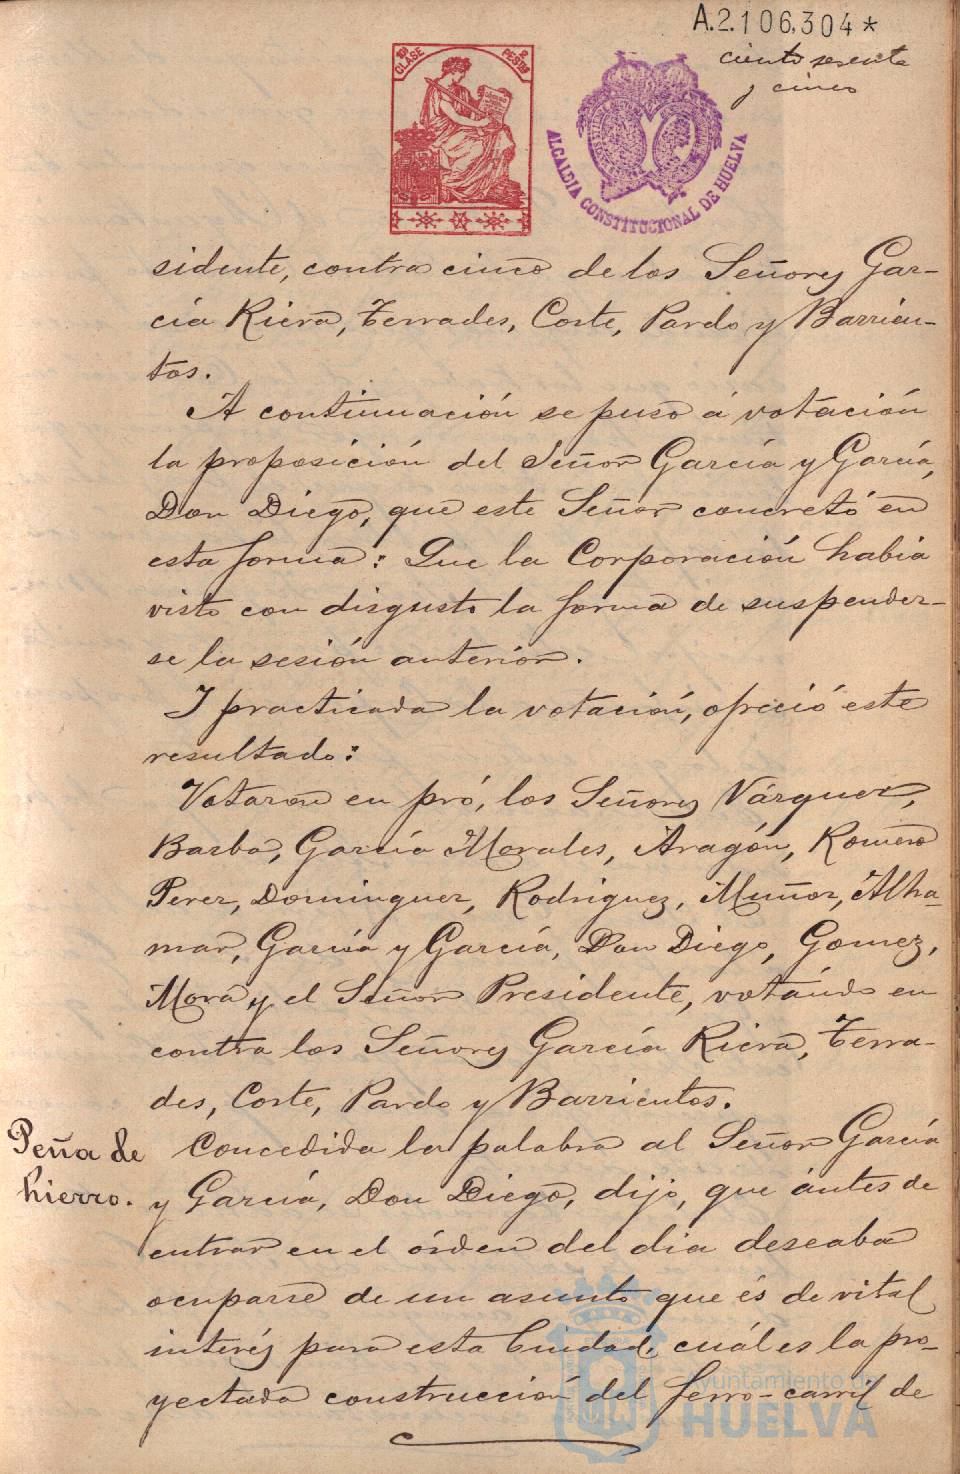 A.2.106,304*
ciento sesenta
y cinco
10ª CLASE
2 PESETAS
ALCALDIA CONSTITUCIONAL DE HUELVA
sidente, contra cinco de los Señores Gar-
cía Riera, Terrades, Corte, Pardo y Barrien-
tos.
A continuación se puso á votación
la proposición del Señor García y García,
Don Diego, que este Señor concretó en
esta forma: Que la Corporación habia
visto con disgusto la forma de suspender-
se la sesión anterior.
Y practicada la votación, ofreció este
resultado:
Votaron en pró, los Señores Vázquez,
Barba, García Morales, Aragón, Romero
Perez, Dominguez, Rodriguez, Muñoz, Alha-
mar, García y García, Don Diego, Gomez,
Mora y el Señor Presidente, votándo en
contra los Señores García Riera, Terra-
des, Corte, Pardo y Barrientos.
Peña de
hierro.
Concedida la palabra al Señor García
y García, Don Diego, dijo, que ántes de
entrar en el órden del dia deseaba
ocuparse de un asunto que és de vital
interés para esta Ciudad, cuál es la pro-
yectada construcción del ferro-carril de
Ayuntamiento de
HUELVA